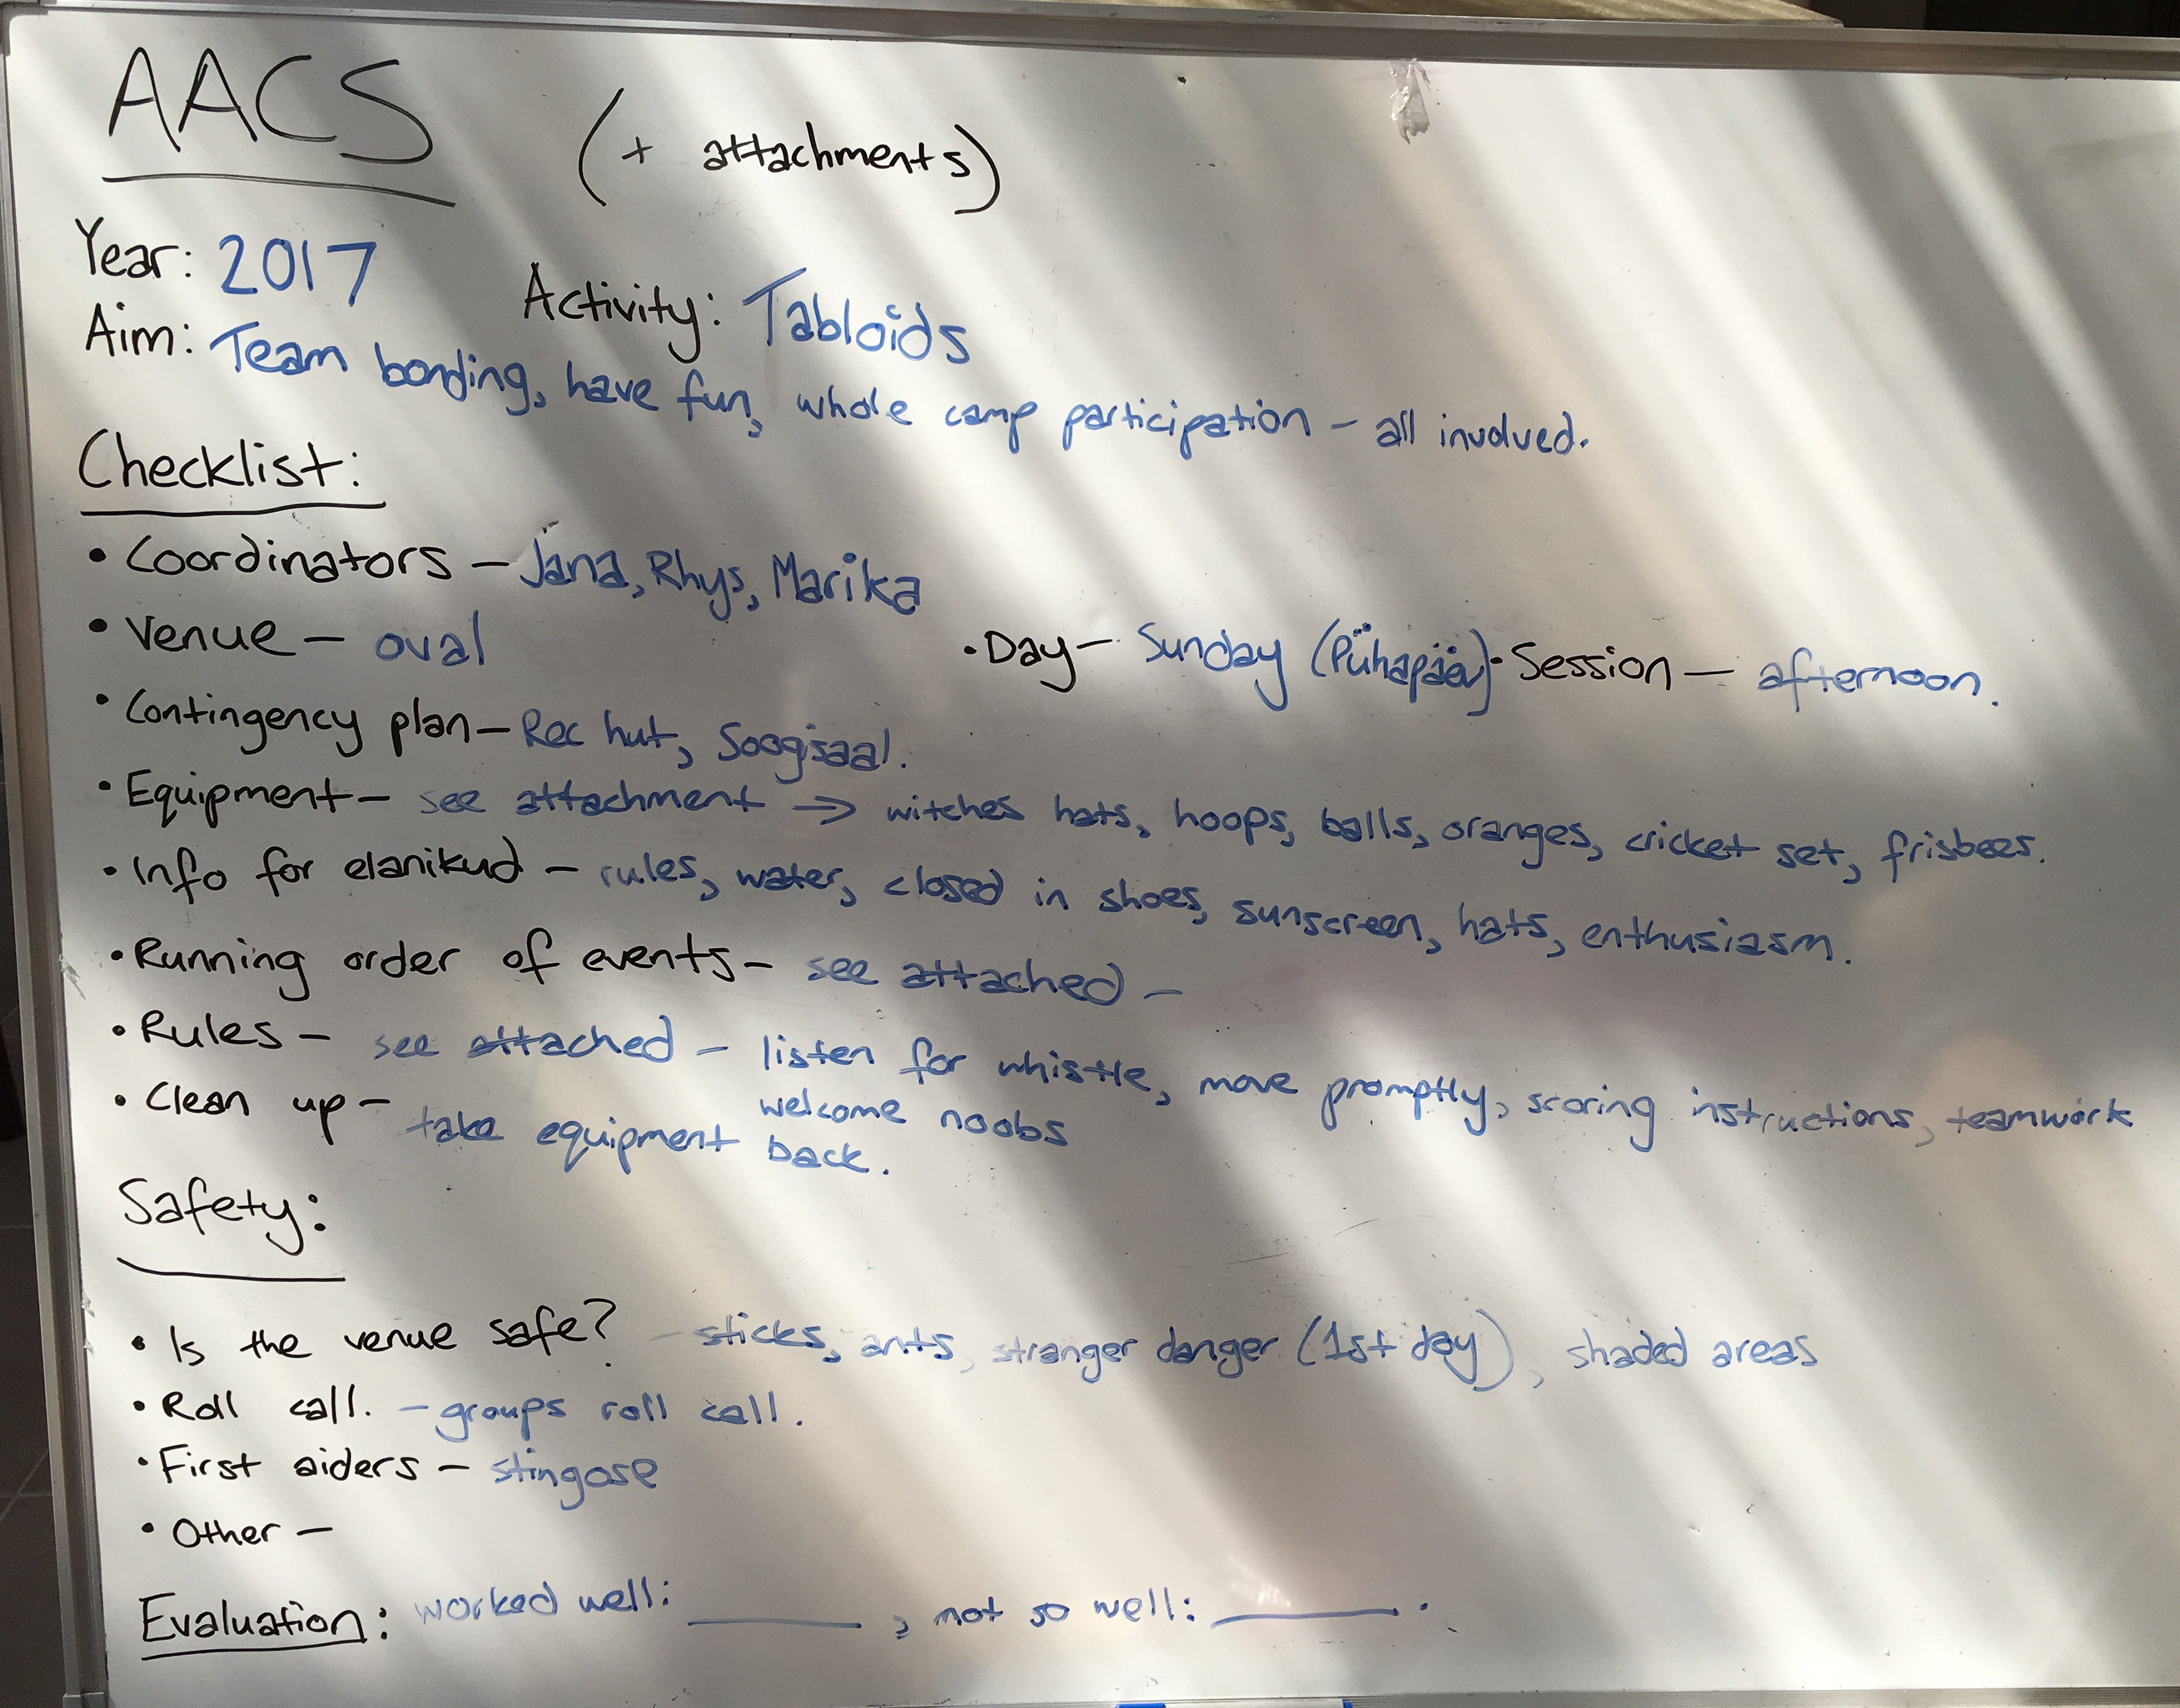 AACS (+ attachments)
Year: 2017 Activity: Tabloids
Aim: Team bonding, have fun, whole camp participation – all involved.
Checklist:
• Coordinators – Jana, Rhys, Marika
• Venue – oval • Day – Sunday (Pühapäev) • Session – afternoon.
• Contingency plan – Rec hut, Söögisaal.
• Equipment – see attachment → witches hats, hoops, balls, oranges, cricket set, frisbees.
• Info for elanikud – rules, water, closed in shoes, sunscreen, hats, enthusiasm.
• Running order of events – see attached –
• Rules – see attached – listen for whistle, move promptly, scoring instructions, teamwork
welcome noobs
• Clean up – take equipment back.
Safety:
• Is the venue safe? – sticks, ants, stranger danger (1st day), shaded areas
• Roll call. – groups roll call.
• First aiders – stingose
• Other –
Evaluation: worked well: ____, not so well: ____.